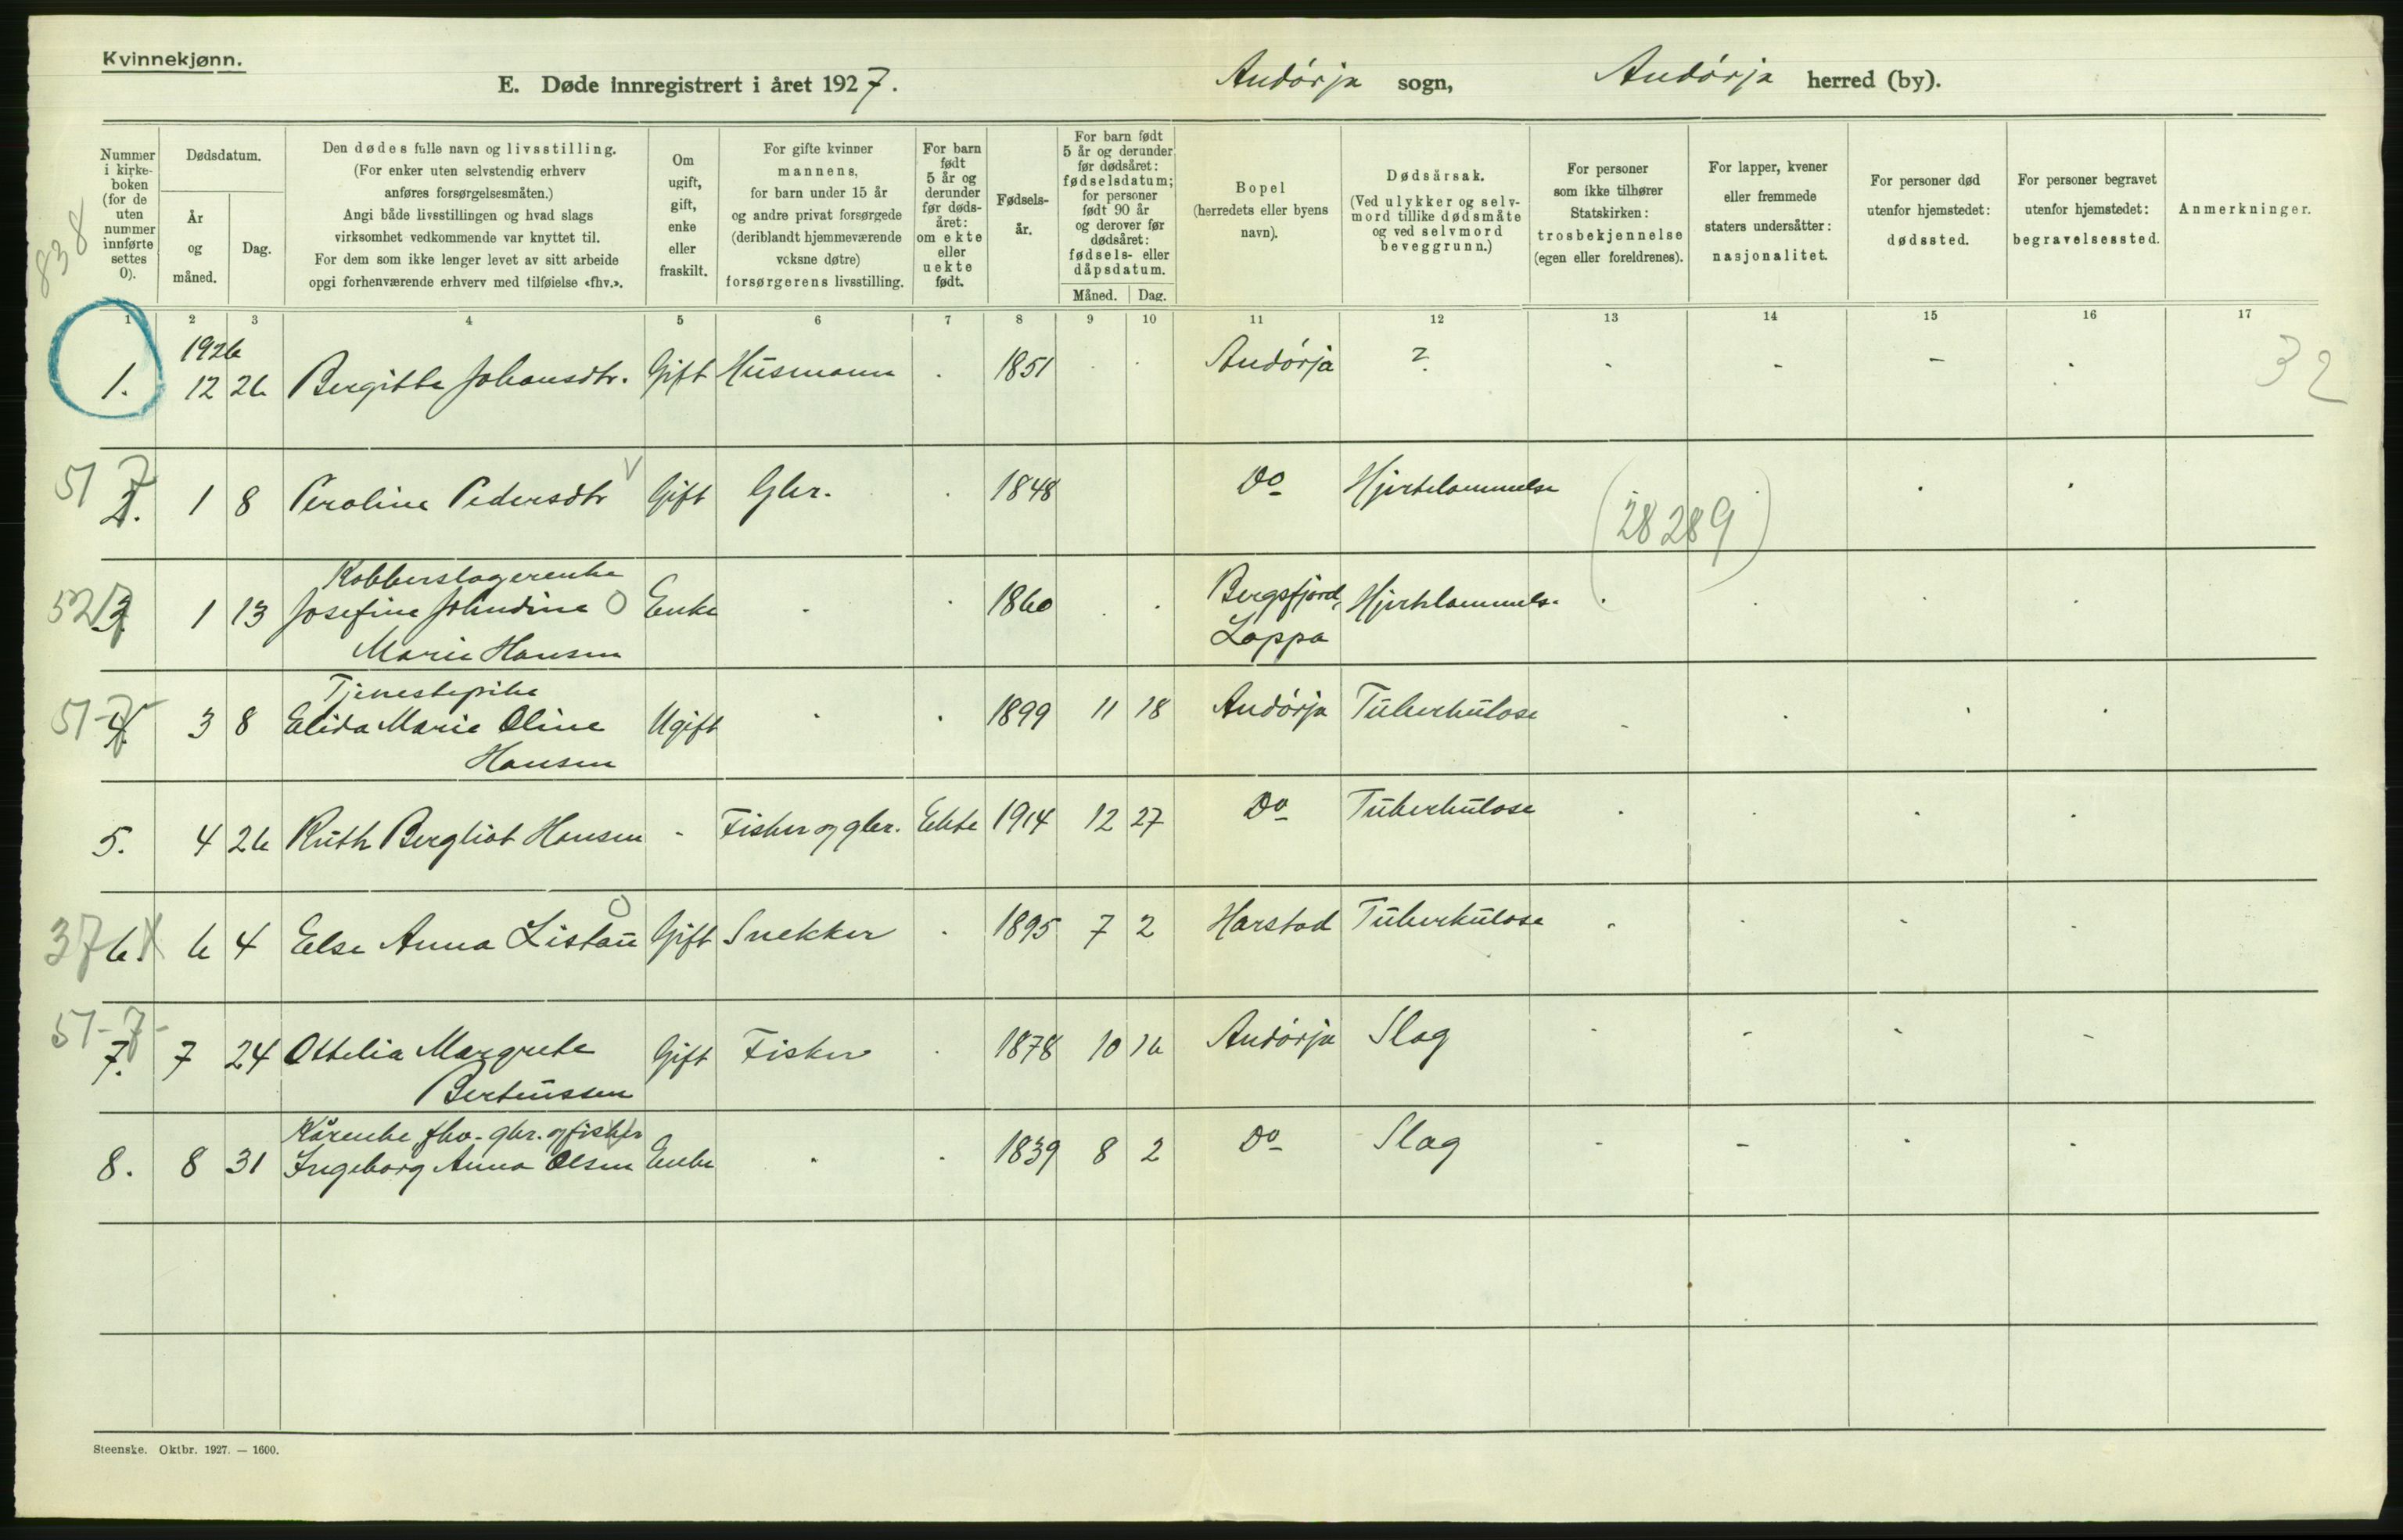 Kvinnekjønn.
E. Døde innregistrert i året 1927. Andörja sogn, Andörja herred (by).
838
Nummer i kirke-boken (for de uten nummer innførte settes 0).
Dødsdatum.
År og måned.
Dag.
Den dødes fulle navn og livsstilling.
(For enker uten selvstendig erhverv
anføres forsørgelsesmåten.)
Angi både livsstillingen og hvad slags
virksomhet vedkommende var knyttet til.
For dem som ikke lenger levet av sitt arbeide
opgi forhenværende erhverv med tilføielse «fhv.».
Om ugift, gift, enke eller fraskilt.
For gifte kvinner
mannens,
for barn under 15 år
og andre privat forsørgede
(deriblandt hjemmeværende
voksne døtre)
forsørgerens livsstilling.
For barn født 5 år og derunder før døds-året: om ekte eller uekte født.
Fødsels-år.
For barn født
5 år og derunder
før dødsåret:
fødselsdatum;
for personer
født 90 år
og derover før
dødsåret:
fødsels- eller
dåpsdatum.
Måned. Dag.
Bopel
(herredets eller byens
navn).
Dødsårsak.
(Ved ulykker og selv-
mord tillike dødsmåte
og ved selvmord
beveggrunn.)
For personer
som ikke tilhører
Statskirken:
trosbekjennelse
(egen eller foreldrenes).
For lapper, kvener
eller fremmede
staters undersåtter:
nasjonalitet.
For personer død
utenfor hjemstedet:
dødssted.
For personer begravet
utenfor hjemstedet:
begravelsessted.
Anmerkninger.
1 2 3 4 5 6 7 8 9 10 11 12 13 14 15 16 17
1926
1. 12 26 Bergitte Johansdtr. Gift Husmann . 1851 . . Andörja ? - - - . 32
51 7
2. 1 8 Peroline Pedersdtr V Gift Gbr. . 1848 Do Hjertelammelse (28289) . .
Kobberslagerenke
52 7 3. 1 13 Josefine Johndine O Enke . . 1860 . . Bergsfjord, Hjertelammels. . . . .
Marie Hansen Loppa
Tjenestepike
51-7- 4. 3 8 Elida Marie Oline Ugift . . 1899 11 18 Andörja Tuberkulose - . . .
Hansen
5. 4 26 Ruth Bergliot Hansen - Fisker og gbr. Ekte 1914 12 27 Do Tuberkulose . . . .
O
37 6. X 6 4 Else Anna Listau Gift Snekker . 1895 7 2 Harstad Tuberkulose - . - .
51-7-
7. 7 24 Ottelia Margrete Gift Fisker . 1878 10 16 Andörja Slag - - - -
Berteussen
Kårenke fhv. gbr. og fisker
8. 8 31 Ingeborg Anna Olsen Enke . . 1839 8 2 Do Slag - - . .
Steenske. Oktbr. 1927. — 1600.